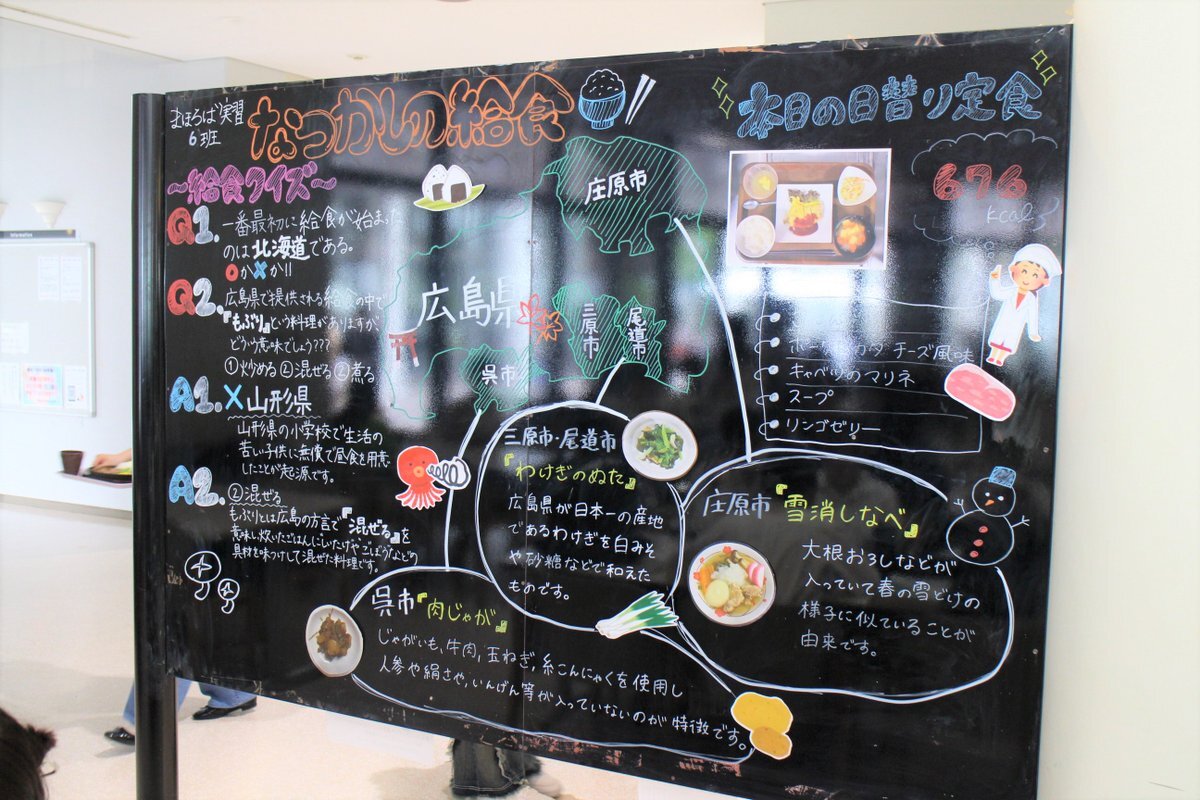 まほろば実習
6班
なつかしの給食
～給食クイズ～
Q1. 一番最初に給食が始まった
のは北海道である。
○か×か!!
Q2. 広島県で提供される給食の中で
『もぶり』という料理がありますが、
どういう意味でしょう???
①炒める ②混ぜる ③煮る
A1. × 山形県
山形県の小学校で生活の
苦しい子供に無償で昼食を用意
したことが起源です。
A2. ②混ぜる
もぶりとは広島の方言で『混ぜる』を
意味し、炊いたごはんにしいたけやごぼうなどの
具材を味つけして混ぜた料理です。
広島県
庄原市
三原市
尾道市
呉市
本日の日替り定食
676
kcal
チーズ風味
キャベツのマリネ
スープ
リンゴゼリー
三原市・尾道市
『わけぎのぬた』
広島県が日本一の産地
であるわけぎを白みそ
や砂糖などで和えた
ものです。
庄原市『雪消しなべ』
大根おろしなどが
入っていて春の雪どけの
様子に似ていることが
由来です。
呉市『肉じゃが』
じゃがいも、牛肉、玉ねぎ、糸こんにゃくを使用し
人参や絹さや、いんげん等が入っていないのが特徴です。
Information